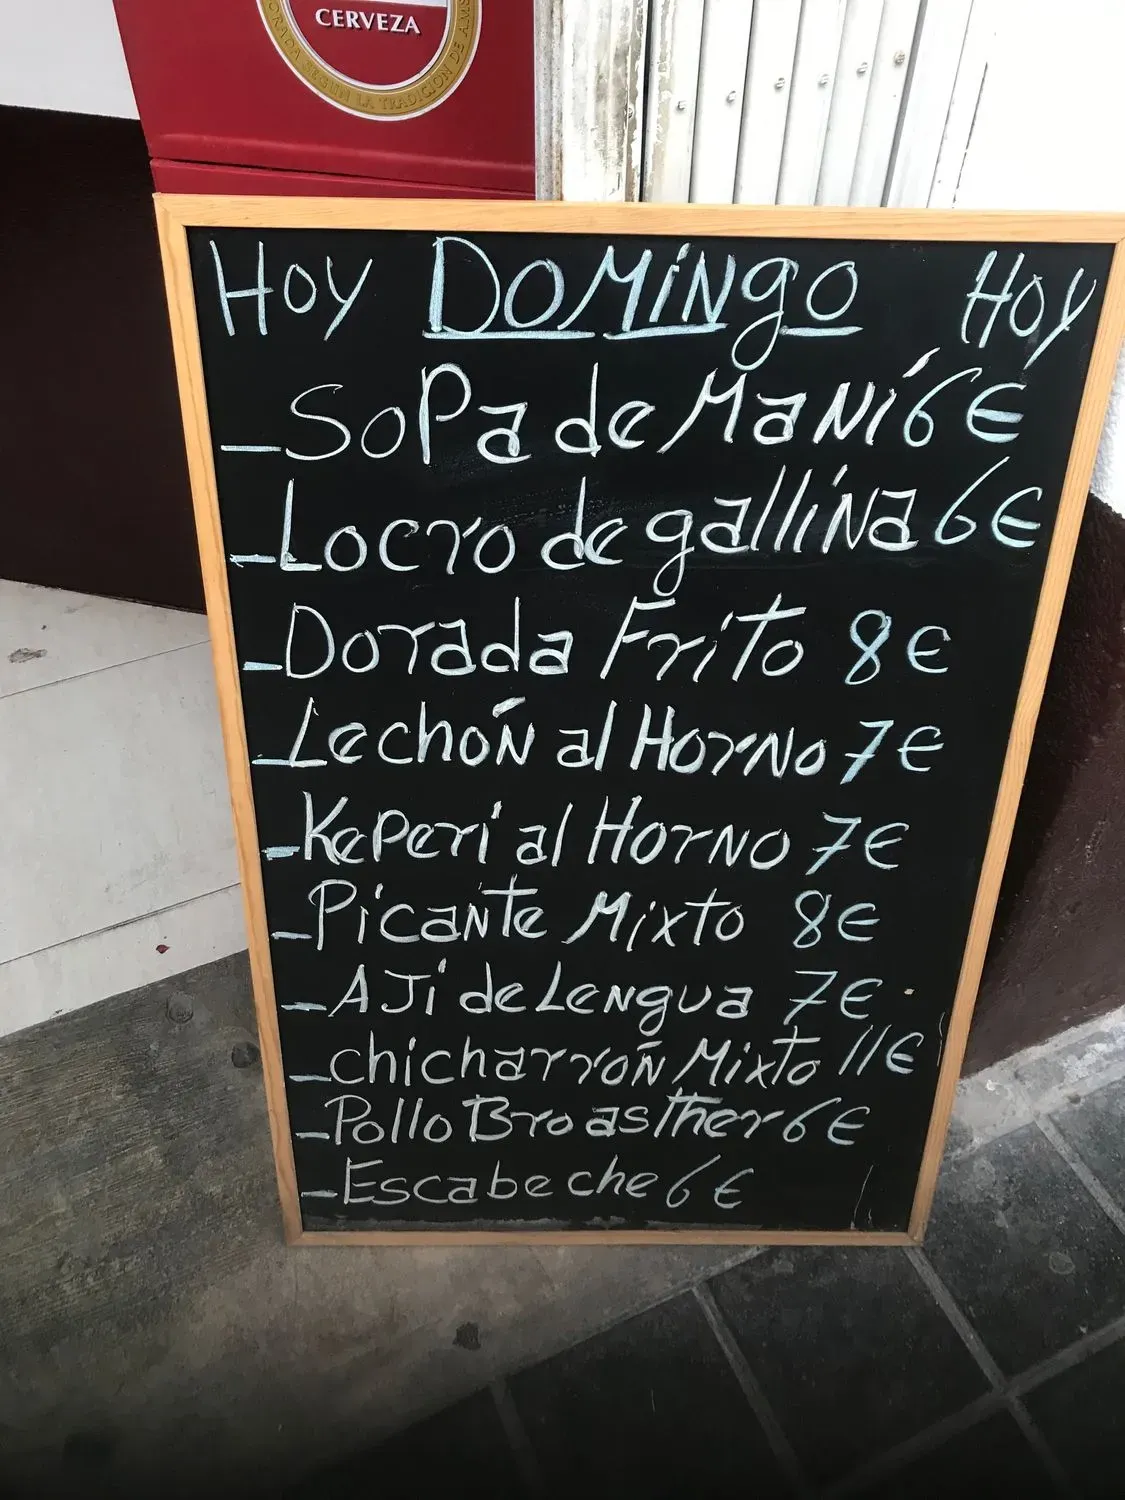 CERVEZA
ORADA SEGUN LA TRADICION DE AMS
HOY DOMINGO HOY
- SOPa de MaNí 6€
- Locro de gallina 6€
- Dorada Frito 8€
- LechóN al HorNo 7€
- Keperi al HorNo 7€
- PicaNte Mixto 8€
- AJi de LeNgua 7€
- chicharróN Mixto 11€
- Pollo Broasther 6€
- Escabeche 6€